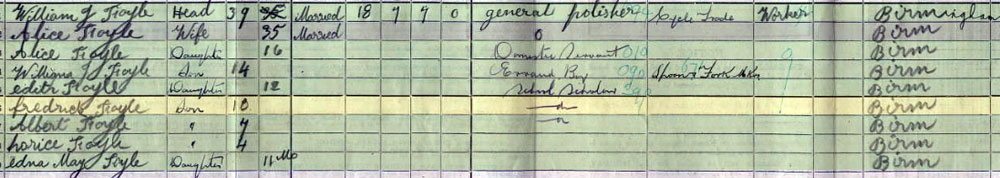 William J Froyle Head 39 35 Married 18 7 7 0 general polisher Cycle Trade Worker Birmingham
Alice Froyle Wife 35 Married 0 Birm
Alice Froyle Daughter 16 Domestic Servant 010 Birm
William J Froyle Son 14 Errand Boy 090 Spoon & Fork Mkr Birm
edith Froyle Daughter 12 School Scholar Birm
fredrick Froyle Son 10 Birm
Albert Froyle " 7 Birm
horice Froyle " 4 Birm
edna May Froyle Daughter 11 Mo Birm